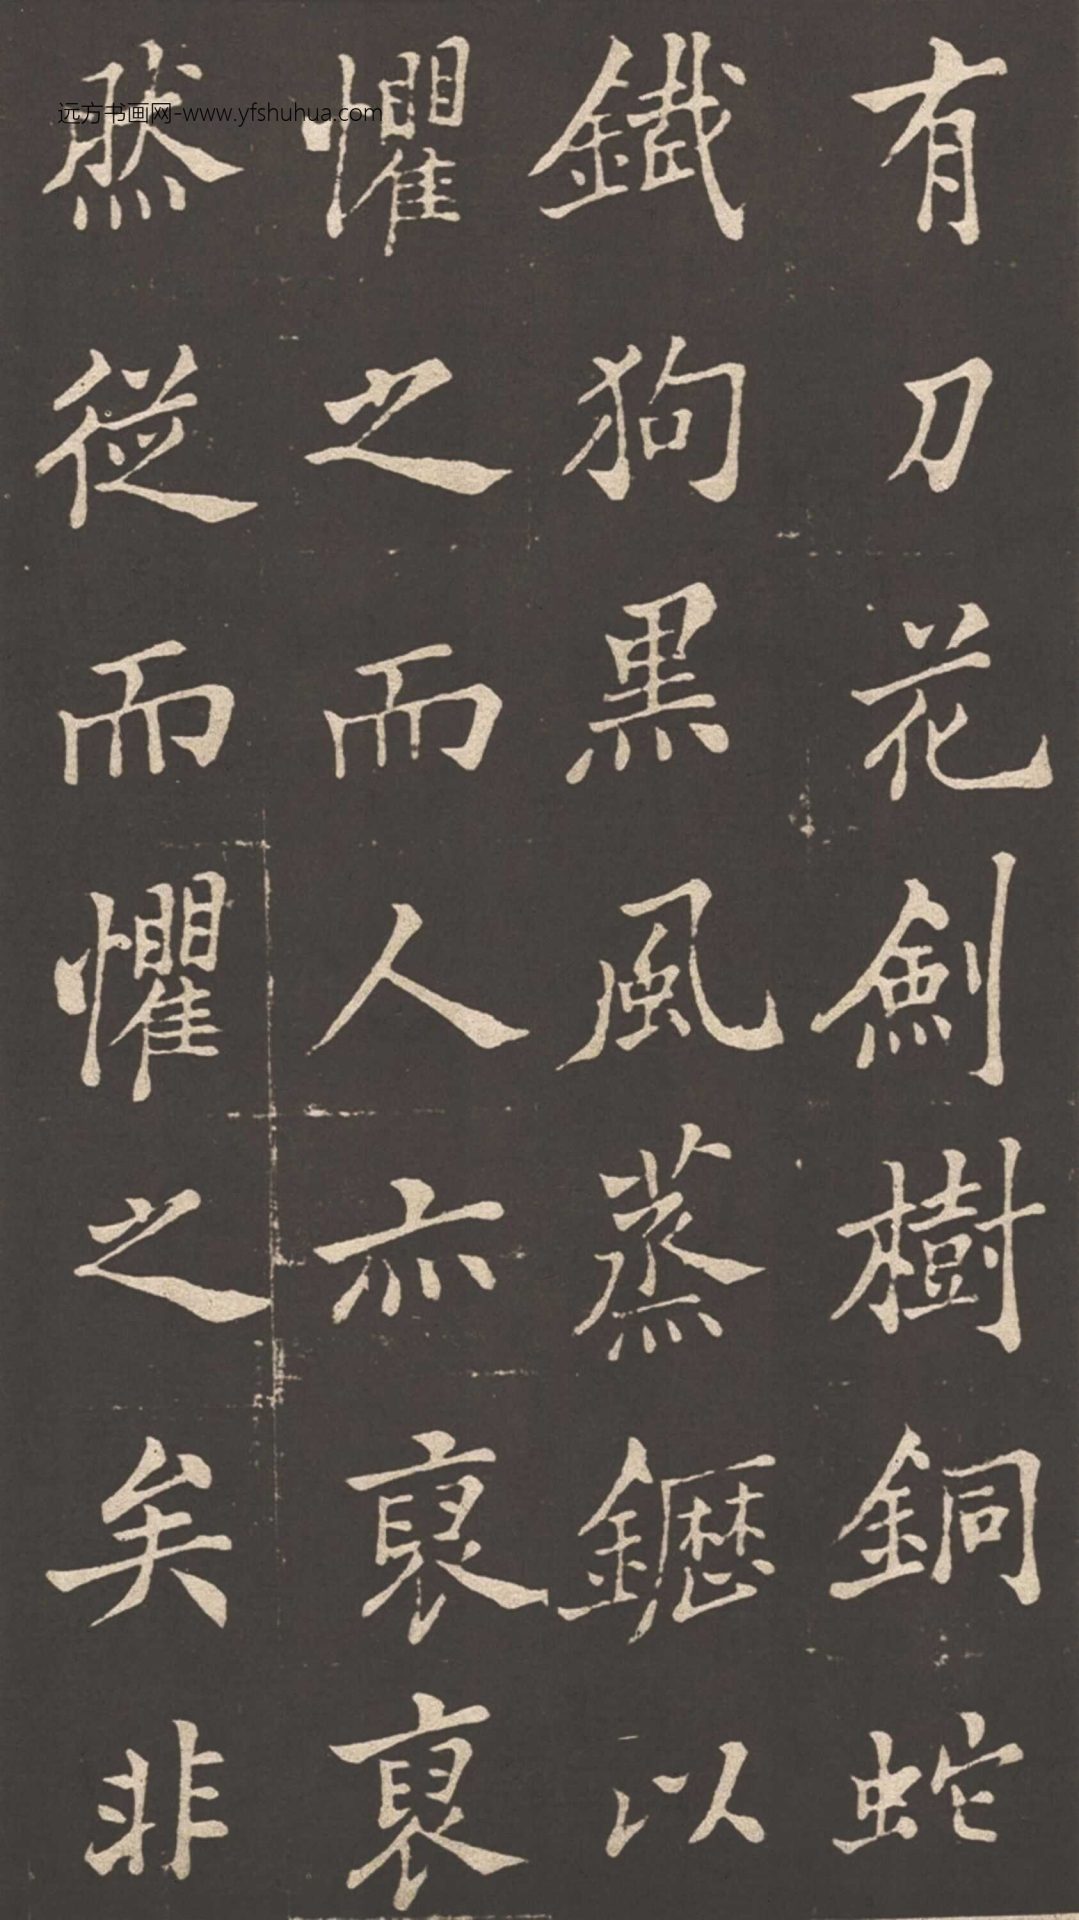 有刀花劍樹銅蛇
鐵狗黑風蒸鑢以
懼之而人亦裒裒
然從而懼之矣非
远方书画网-www.yfshuhua.com